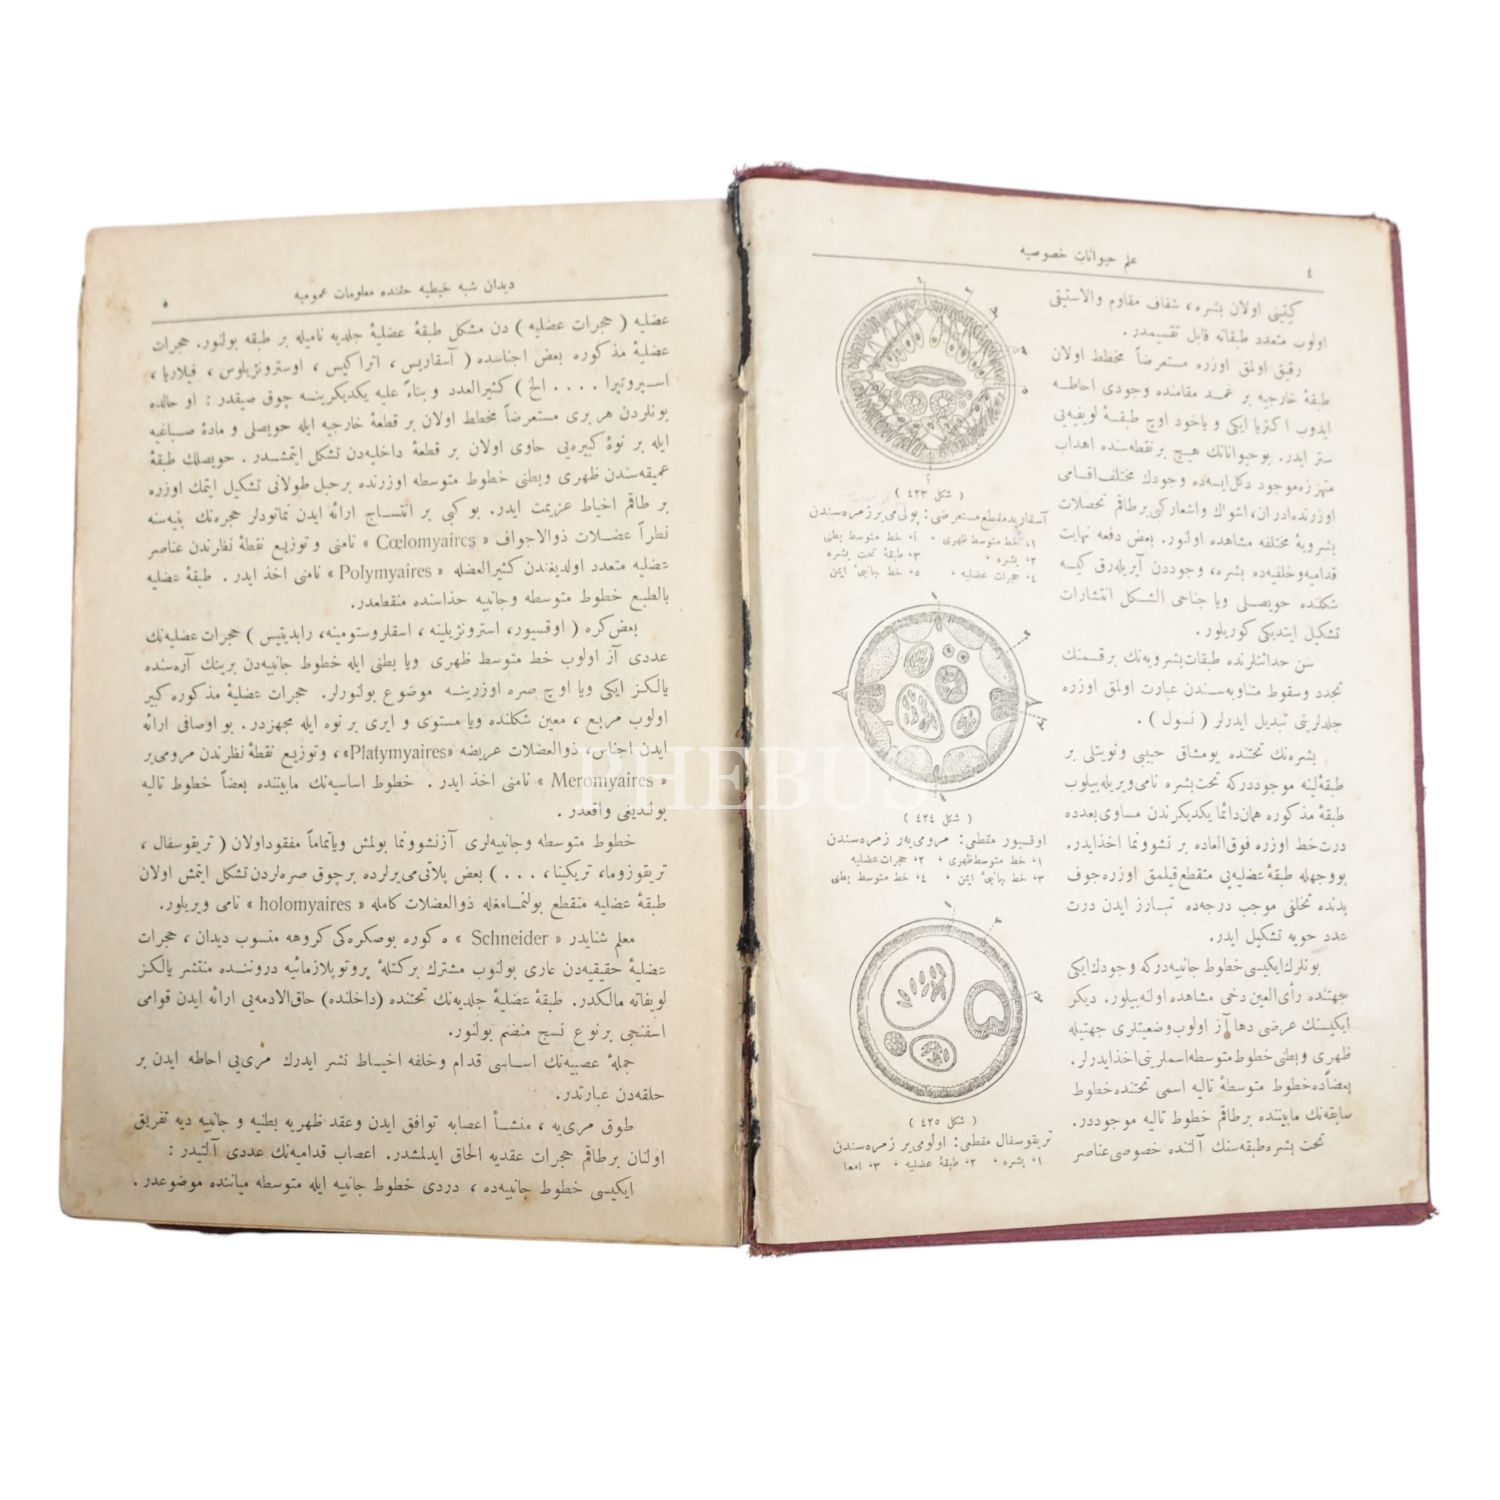 ٤
علم حیوانات خصوصیه
كیتینی اولان بشره، شفاف مقاوم والاستیقی
اولوب متعدد طبقاته قابل تقسیمدر.
رقیق اولمق اوزره مستعرضاً مخطط اولان
طبقهٔ خارجیه بر غمد مقامنده وجودی احاطه
ایدوب اكثریا ایكی ویاخود اوچ طبقهٔ لویفیه‌یی
ستر ایدر. بوحیواناتك هیچ بر نقطه‌سنده اهداب
مهتزه موجود دكل ایسه‌ده وجودك مختلف اقسامی
اوزرنده ادران، اشواك واشعار كبی برطاقم تحصلات
بشرویهٔ مختلفه مشاهده اولنور. بعض دفعه نهایت
قدامیه وخلفیه‌ده بشره، وجوددن آیریله‌رق كیسه
شكلنده حویصلی ویا جناحی الشكل انتشارات
تشكیل ایتدیكی كوریلور.
سن حداثتلرنده طبقات بشرویه‌نك برقسمنك
تجدد وسقوط متناوبه‌سندن عبارت اولمق اوزره
جلدلرینی تبدیل ایدرلر ( نسول ).
بشره‌نك تحتنده یومشاق حبیبی ونویتلی بر
طبقهٔ لینه موجوددركه تحت بشره نامی ویریله‌بیلوب
طبقهٔ مذكوره همان دائما یكدیكرندن مساوی بعدده
درت خط اوزره فوق العاده بر نشوونما اخذایدر.
بووجهله طبقهٔ عضلیه‌یی متقطع قیلمق اوزره جوف
بدنده تخلفی موجب درجه‌ده تبارز ایدن درت
عدد حویه تشكیل ایدر.
بونلرك ایكیسی خطوط جانبیه‌دركه وجودك ایكی
جهتنده رأی العین دخی مشاهده اولنه‌بیلور. دیكر
ایكیسنك عرضی دها آز اولوب وضعیتلری جهتیله
ظهری وبطنی خطوط متوسطه اسملرینی اخذایدرلر.
بعضاًده خطوط متوسطهٔ تالیه اسمی تحتنده خطوط
سابقه‌نك مابیننده برطاقم خطوط تالیه موجوددر.
تحت بشره طبقه‌سنك آلتنده خصوصی عناصر
( شكل ٤٢٣ )
آسقاریدمقطع مستعرضی: پولی می‌یر زمره‌سندن
١، خط متوسط ظهری ، ١َ، خط متوسط بطنی
٢، بشره ، ٣، طبقهٔ تحت بشره
٤، حجرات عضلیه ، ٥، خط جانبیٔ ایمن
( شكل ٤٢٤ )
اوقسیور مقطعی: مرومی‌یه‌ر زمره‌سندن
١، خط متوسط ظهری ، ٢، حجرات عضلیه
٣، خط جانبیٔ ایمن ، ٤، خط متوسط بطنی
( شكل ٤٢٥ )
تریقوسفال مقطعی: اولومی‌یر زمره‌سندن
١، بشره ، ٢، طبقهٔ عضلیه ، ٣، امعا
دیدان شبه خیطیه حقنده معلومات عمومیه
٥
عضلیه ( حجرات عضلیه ) دن مشكل طبقهٔ عضلیهٔ جلدیه نامیله بر طبقه بولنور. حجرات
عضلیهٔ مذكوره بعض اجناسده ( آسقاریس ، اتراكیس ، اوسترونژیلوس ، فیلاریا ،
اسپیروتپرا .... الخ ) كثیرالعدد و بناءً علیه یكدیكرینه چوق صیقدر : او حالده
بونلردن هر بری مستعرضاً مخطط اولان بر قطعهٔ خارجیه ایله حویصلی و مادهٔ صباغیه
ایله بر نوهٔ كبیره‌یی حاوی اولان بر قطعهٔ داخلیه‌دن تشكل ایتمشدر. حویصلك طبقهٔ
عمیقه‌سندن ظهری وبطنی خطوط متوسطه اوزرنده بر حبل طولانی تشكیل ایتمك اوزره
بر طاقم اخیاط عزیمت ایدر. بو كبی بر انتساج ارائه ایدن نماتودلر حجره‌نك بنیه‌سنه
نظراً عضلات ذوالاجواف « Cœlomyaires » نامنی و توزیع نقطهٔ نظرندن عناصر
عضلیه متعدد اولدیغندن كثیرالعضله « Polymyaires » نامنی اخذ ایدر . طبقهٔ عضلیه
بالطبع خطوط متوسطه وجانبیه حذاسنده منقطعدر.
بعض كره ( اوقسیور، استرونژیلینه ، اسقلروستومینه، رابدیتیس ) حجرات عضلیه‌نك
عددی آز اولوب خط متوسط ظهری ویا بطنی ایله خطوط جانبیه‌دن برینك آره‌سنده
یالكز ایكی ویا اوچ صره اوزرینه موضوع بولنورلر. حجرات عضلیهٔ مذكوره كبیر
اولوب مربع ، معین شكلنده ویا مستوی و ایری بر نوه ایله مجهزدر. بو اوصافی ارائه
ایدن اجناس، ذوالعضلات عریضه «Platymyaires» ، وتوزیع نقطهٔ نظرندن مرومی‌یر
« Meromyaires » نامنی اخذ ایدر . خطوط اساسیه‌نك مابیننده بعضاً خطوط تالیه
بولندیغی واقعدر.
خطوط متوسطه وجانبیه‌لری آز نشوونما بولمش ویاتماماً مفقوداولان ( تریقوسفال ،
تریقوزوما، تریكینا ، ... ) بعض پلاتی‌می‌یرلرده برچوق صره‌لردن تشكل ایتمش اولان
طبقهٔ عضلیه منقطع بولنمامغله ذوالعضلات كامله « holomyaires » نامی ویریلور.
معلم شنایدر « Schneider » ه كوره بوصكره‌كی كروهه منسوب دیدان ، حجرات
عضلیهٔ حقیقیه‌دن عاری بولنوب مشترك بركتلهٔ پروتوپلازمائیه دروننده منتشر یالكز
لویفاته مالكدر. طبقهٔ عضلیهٔ جلدیه‌نك تحتنده (داخلنده) حاق‌الادمه‌یی ارائه ایدن قوامی
اسفنجی برنوع نسج منضم بولنور.
جملهٔ عصبیه‌نك اساسی قدام وخلفه اخیاط نشر ایدرك مری‌یی احاطه ایدن بر
حلقه‌دن عبارتدر.
طوق مری‌یه ، منشأ اعصابه توافق ایدن وعقد ظهریه بطنیه و جانبیه دیه تفریق
اولنان برطاقم حجرات عقدیه الحاق ایدلمشدر. اعصاب قدامیه‌نك عددی آلتیدر :
ایكیسی خطوط جانبیه‌ده ، دردی خطوط جانبیه ایله متوسطه میاننده موضوعدر.
PHEBUS